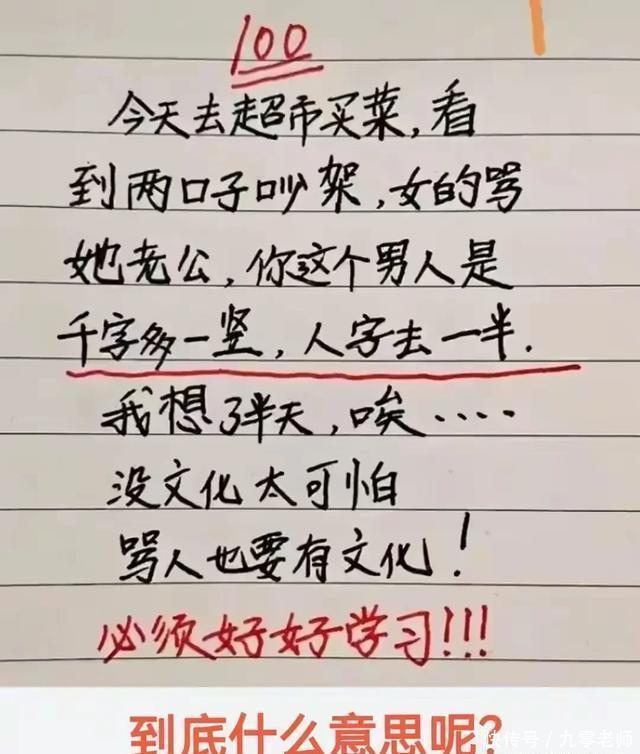 100
今天去超市买菜,看
到两口子吵架,女的骂
她老公,你这个男人是
千字多一竖,人字去一半.
我想了半天,唉····
没文化太可怕
骂人也要有文化!
必须好好学习!!!
到底什么意思呢?
快传号/九零老师